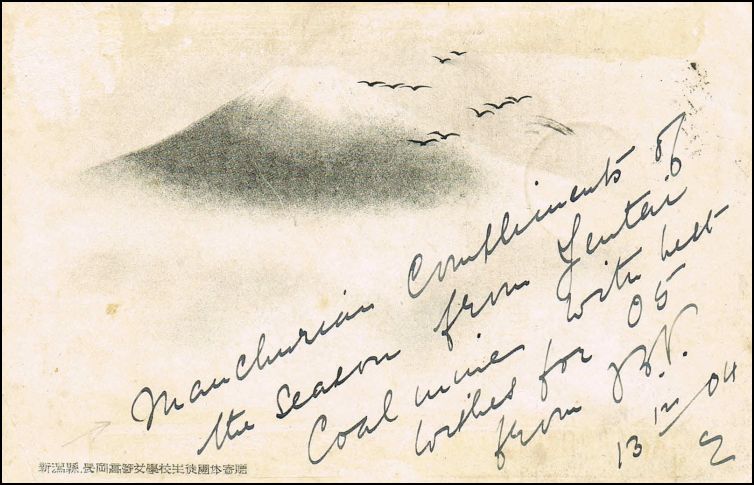 Manchurian Compliments of
the season from Yentai
Coal mines with best
wishes for 05
from
13 12 04
新潟縣長岡高等女學校生徒團体寄贈